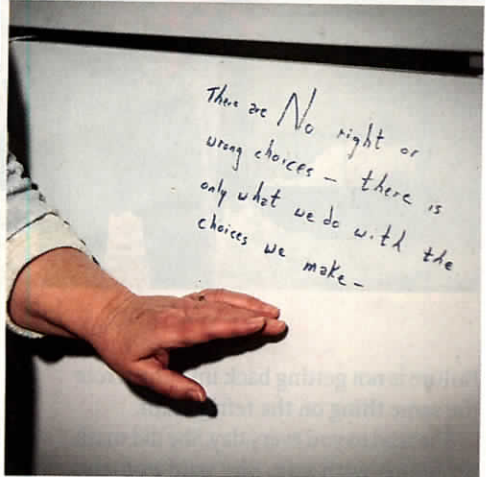 There are No right or
wrong choices – there is
only what we do with the
choices we make –